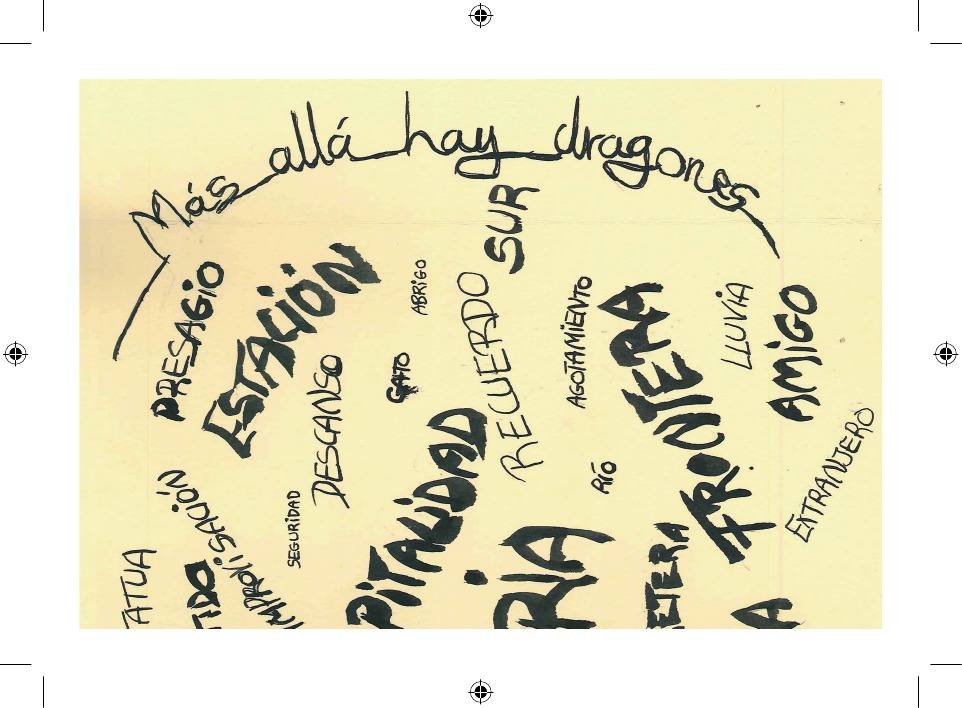 Más allá hay dragones
PRESAGIO
ESTACIÓN
DESCANSO
ABRIGO
GATO
RECUERDO
SUR
AGOTAMIENTO
RÍO
FRONTERA
LLUVIA
AMIGO
EXTRANJERO
SEGURIDAD
PITALIDAD
RIA
ETERA
A
ATUA
TIDO
IMPROVISACIÓN